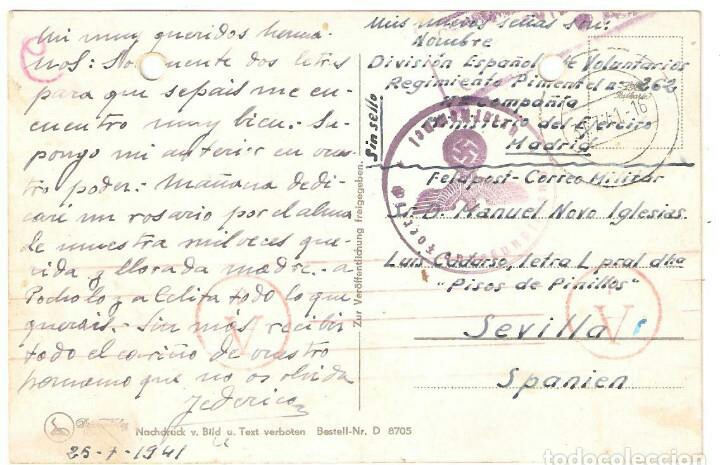 Mi muy queridos herma-
nos: Solamente dos letras
para que sepais me en-
cuentro muy bien. Su-
pongo mi anterior en vues-
tro poder. Mañana dedi-
caré un rosario por el alma
de nuestra mil veces que-
rida y llorada madre. a
Pocholo y a Celita todo lo que
querais. Sin más recibir
todo el cariño de vuestro
hermano que no os olvida
Federico
25-7-1941
Nachdruck v. Bild u. Text verboten Bestell-Nr. D 8705
Zur Veröffentlichung freigegeben.
Sin sello
Mis nuevas señas son:
Nombre
División Española de Voluntarios
Regimiento Pimentel nº 262
Compañía
Ministerio del Ejercito
Madrid
Feldpost-Correo Militar
Sr. D. Manuel Novo Iglesias
Luis Cadarso, letra L pral dha
"Pisos de Pinillos"
Sevilla
Spanien
A
V
A
V
todocoleccion